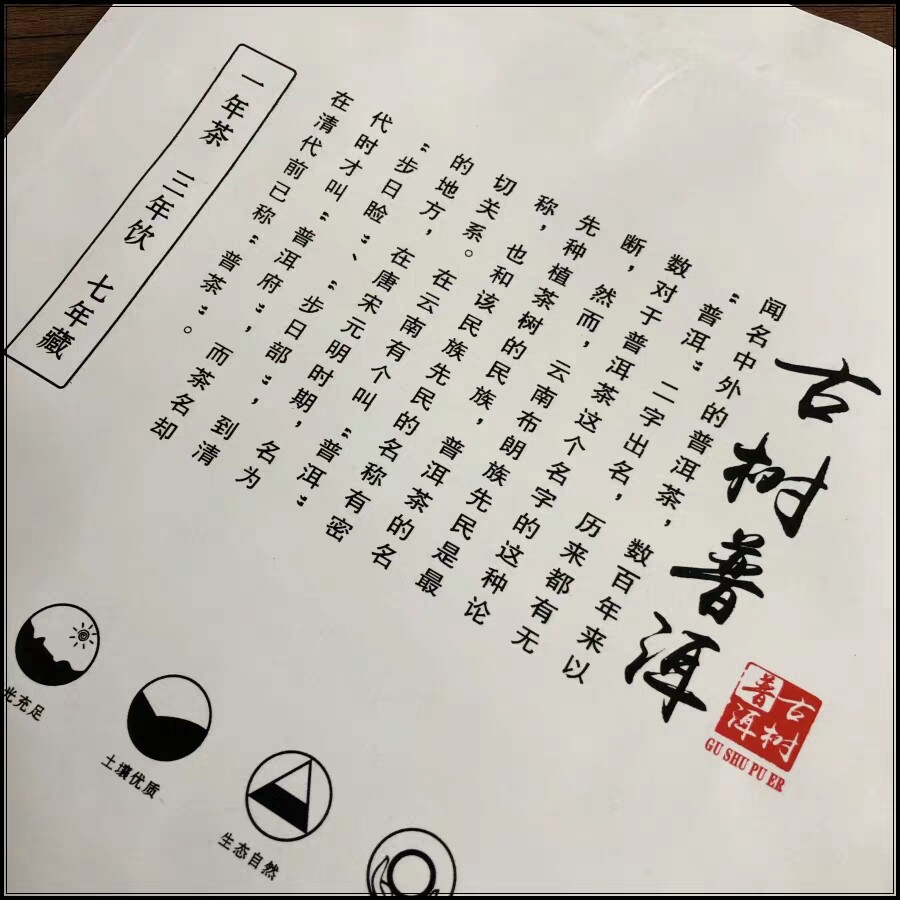 古树普洱
古树普洱
GU SHU PU ER
闻名中外的普洱茶，数百年来以
“普洱”二字出名，历来都有无
数对于普洱茶这个名字的这种论
断，然而，云南布朗族先民是最
先种植茶树的民族，普洱茶的名
称，也和该民族先民的名称有密
切关系。在云南有个叫“普洱”
的地方，在唐宋元明时期，名为
“步日睑”、“步日部”，到清
代时才叫“普洱府”，而茶名却
在清代前已称“普茶”。
一年茶 三年饮 七年藏
光充足
土壤优质
生态自然